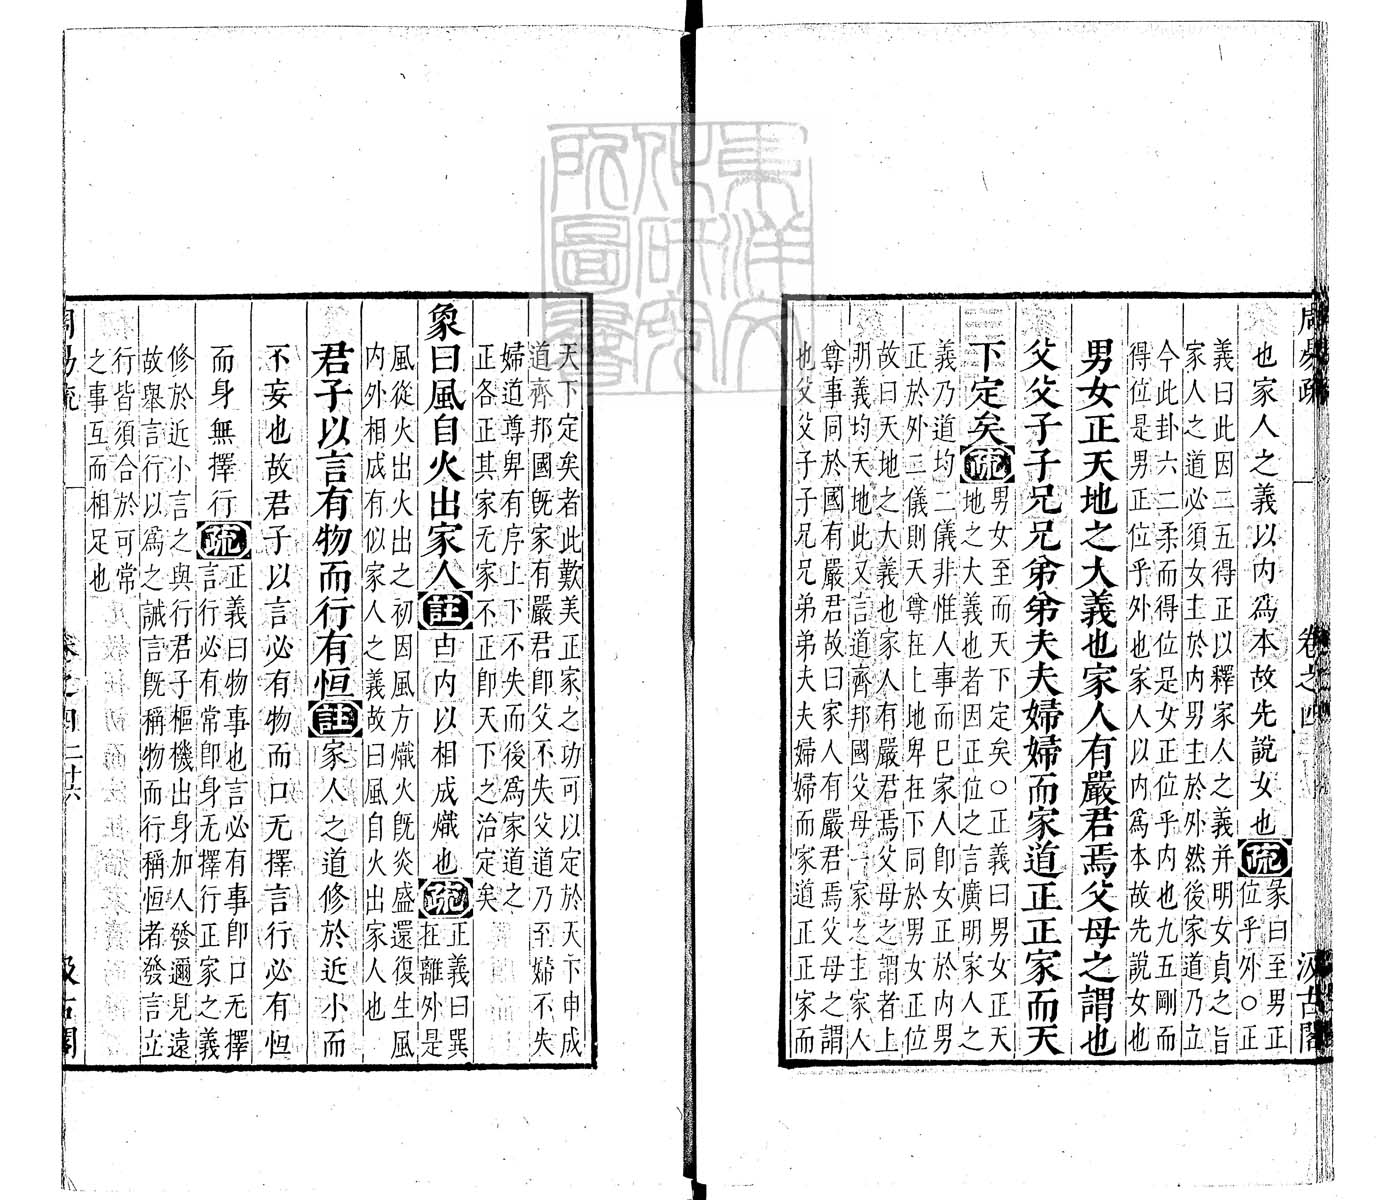 周易疏 卷之四 汲古閣
也家人之義以内爲本故先說女也疏彖曰至男正
位乎外○正
義曰此因二五得正以釋家人之義并明女貞之旨
家人之道必須女主於内男主於外然後家道乃立
今此卦六二柔而得位是女正位乎内也九五剛而
得位是男正位乎外也家人以内爲本故先說女也
男女正天地之大義也家人有嚴君焉父母之謂也
父父子子兄兄弟弟夫夫婦婦而家道正正家而天
下定矣疏男女至而天下定矣○正義曰男女正天
地之大義也者因正位之言廣明家人之
義乃道均二儀非惟人事而已家人卽女正於内男
正於外二儀則天尊在上地卑在下同於男女正位
故曰天地之大義也家人有嚴君焉父母之謂者上
明義均天地此又言道齊邦國父母一家之主家人
尊事同於國有嚴君故曰家人有嚴君焉父母之謂
也父父子子兄兄弟弟夫夫婦婦而家道正正家而
天下定矣者此歎美正家之功可以定於天下申成
道齊邦國旣家有嚴君卽父不失父道乃至婦不失
婦道尊卑有序上下不失而後爲家道之
正各正其家无家不正卽天下之治定矣
象曰風自火出家人註由内以相成熾也疏正義曰巽
在離外是
風從火出火出之初因風方熾火旣炎盛還復生風
内外相成有似家人之義故曰風自火出家人也
君子以言有物而行有恒註家人之道修於近小而
不妄也故君子以言必有物而口无擇言行必有恒
而身無擇行疏正義曰物事也言必有事卽口无擇
言行必有常卽身无擇行正家之義
修於近小言之與行君子樞機出身加人發邇見遠
故舉言行以爲之誡言旣稱物而行稱恒者發言立
行皆須合於可常
之事互而相足也
周易疏 卷之四 二十六 汲古閣